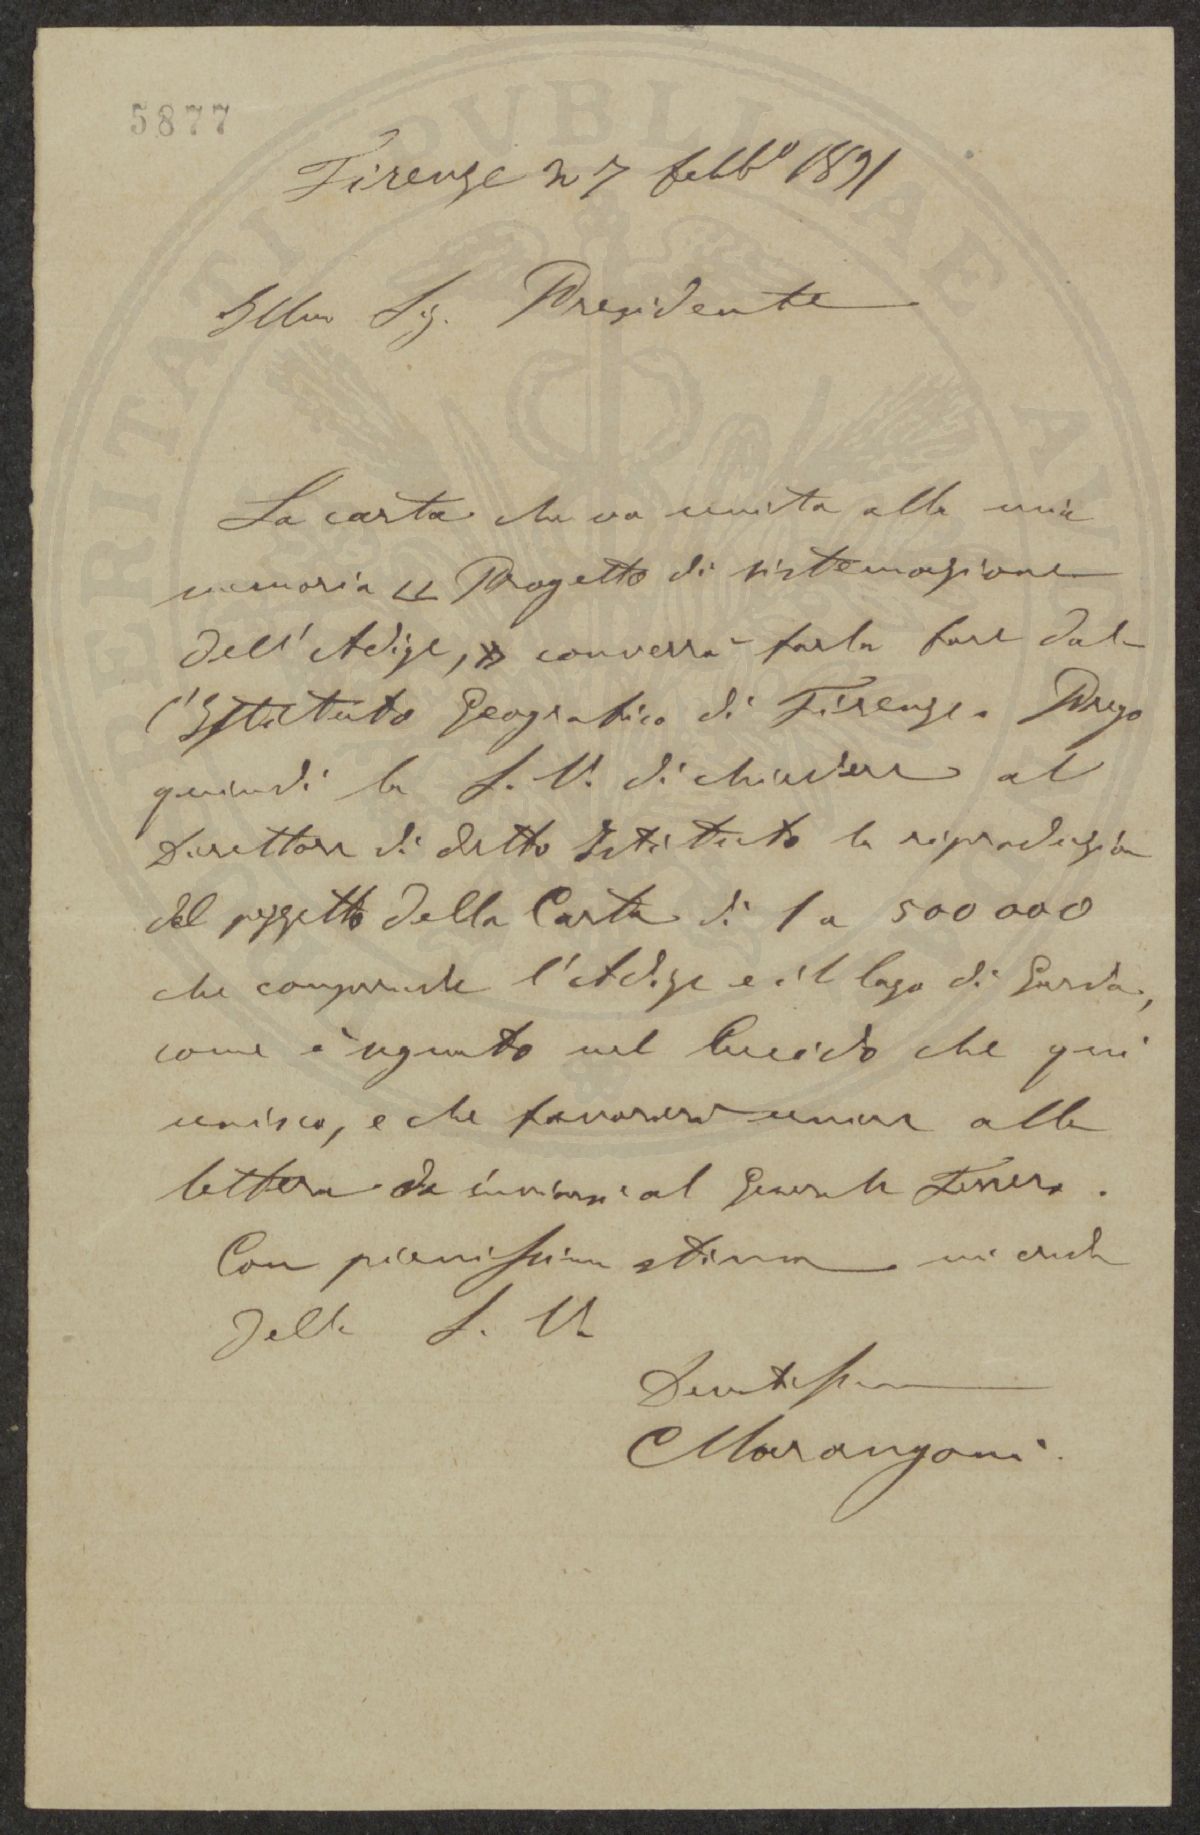 5877
Firenze 27 febb.o 1891
Illmo Sig. Presidente
La carta che va unita alla mia
memoria « Progetto di sistemazione
dell'Adige, » converrà farla fare dal-
l'Istituto Geografico di Firenze. Prego
quindi la S. V. di chiedere al
Direttore di detto Istituto la riproduzione
del pezzetto della Carta di 1 a 500 000
che comprende l'Adige e il lago di Garda,
come è segnato nel lucido che qui
unisco, e che favorirà unire alla
lettera da inviarsi al Generale Ferrero.
Con pienissima stima mi creda
Della S. V.
Devotissimo
C Marangoni
PVBLICAE